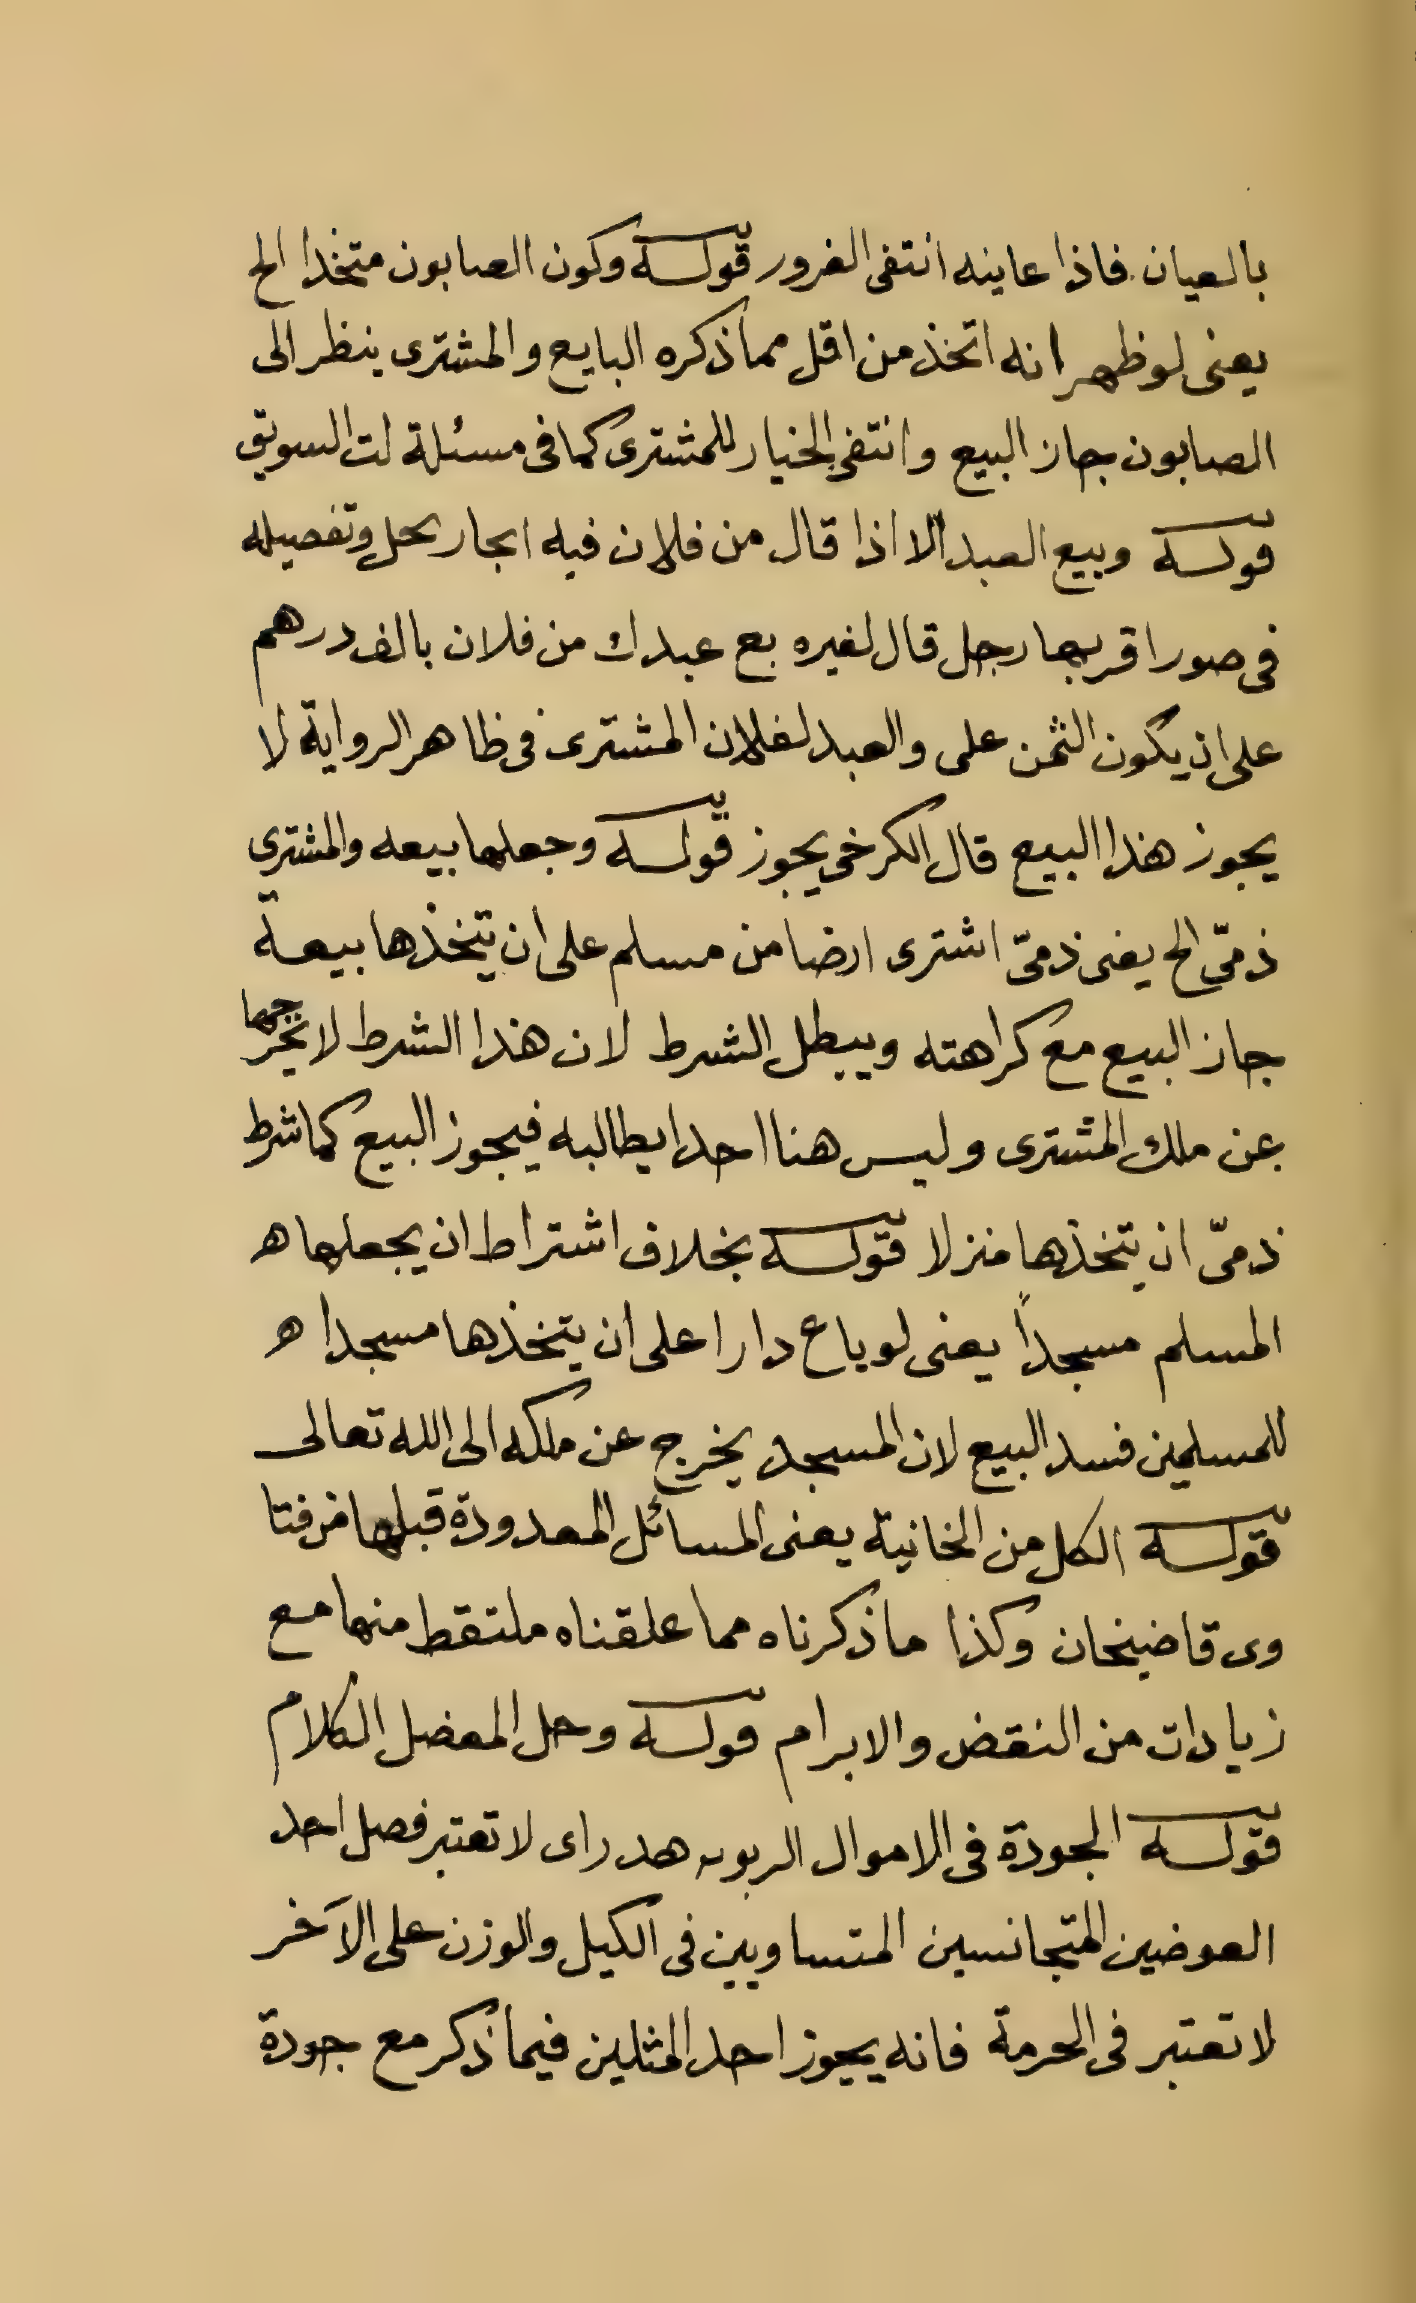 بالعيان فاذا عاينه انتفى الغرور قوله وكون الصابون متخذا الخ
يعنى لو ظهر انه اتخذ من اقل مما ذكره البايع والمشترى ينظر الى
الصابون جاز البيع وانتفى الخيار للمشترى كما فى مسئلة لت السويق
قوله وبيع العبد الا اذا قال من فلان فيه ايجاز يحل وتفصيله
فى صور اقربها رجل قال لغيره بع عبدك من فلان بالف درهم
على ان يكون الثمن على والعبد لفلان المشترى فى ظاهر الرواية لا
يجوز هذا البيع قال الكرخى يجوز قوله وجعلها بيعه والمشترى
ذمىّ الخ يعنى ذمىّ اشترى ارضا من مسلم على ان يتخذها بيعة
جاز البيع مع كراهته ويبطل الشرط لان هذا الشرط لا يخرجها
عن ملك المشترى وليس هنا احدا يطالبه فيجوز البيع كما شرط
ذمىّ ان يتخذها منزلا قوله بخلاف اشتراط ان يجعلها ه
المسلم مسجداً يعنى لو باع دارا على ان يتخذها مسجدا ه
للمسلمين فسد البيع لان المسجد يخرج عن ملكه الى الله تعالى
قوله الكل من الخانية يعنى المسائل المعدودة قبلها من فتا
وى قاضيخان وكذا ما ذكرناه مما علقناه ملتقط منها مع
زيادات من النقض والابرام قوله وحل المعضل الكلام
قوله الجودة فى الاموال الربويه هدر اى لا تعتبر فصل احد
العوضين المتجانسين المتساويين فى الكيل والوزن على الآخر
لا تعتبر فى الحرمة فانه يجوز احد المثلين فيما ذكر مع جودة